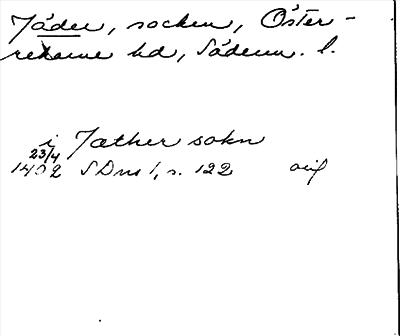 Jäder, socken, Öster-
rekarne hd, Söderm. l.
i Jæther sokn
23/4
1402 SDns 1, s. 122